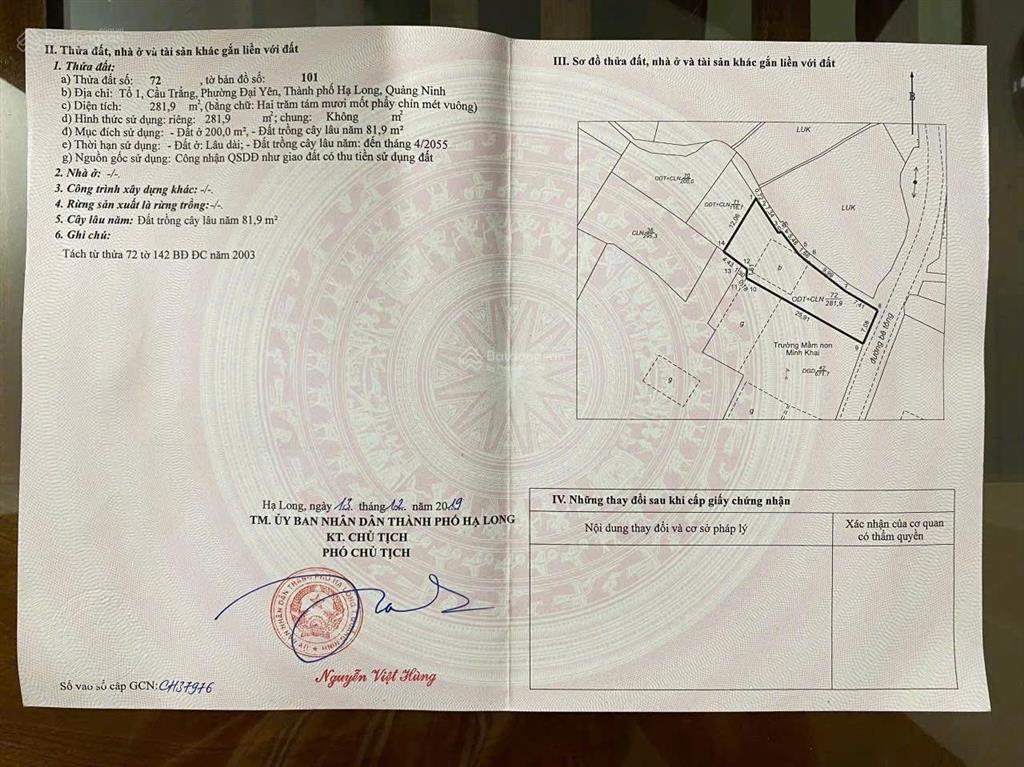 II. Thửa đất, nhà ở và tài sản khác gắn liền với đất
1. Thửa đất:
a) Thửa đất số: 72 , tờ bản đồ số: 101
b) Địa chỉ: Tổ 1, Cầu Trắng, Phường Đại Yên, Thành phố Hạ Long, Quảng Ninh
c) Diện tích: 281,9 m², (bằng chữ: Hai trăm tám mươi mốt phẩy chín mét vuông)
d) Hình thức sử dụng: riêng: 281,9 m²; chung: Không m²
đ) Mục đích sử dụng: - Đất ở 200,0 m², - Đất trồng cây lâu năm 81,9 m²
e) Thời hạn sử dụng: - Đất ở: Lâu dài; - Đất trồng cây lâu năm: đến tháng 4/2055
g) Nguồn gốc sử dụng: Công nhận QSDĐ như giao đất có thu tiền sử dụng đất
2. Nhà ở: -/-.
3. Công trình xây dựng khác: -/-.
4. Rừng sản xuất là rừng trồng:-/-.
5. Cây lâu năm: Đất trồng cây lâu năm 81,9 m²
6. Ghi chú:
Tách từ thửa 72 tờ 142 BĐ ĐC năm 2003
Hạ Long, ngày 13 tháng 12 năm 2019
TM. ỦY BAN NHÂN DÂN THÀNH PHỐ HẠ LONG
KT. CHỦ TỊCH
PHÓ CHỦ TỊCH
Nguyễn Việt Hùng
Số vào sổ cấp GCN: CH37976
III. Sơ đồ thửa đất, nhà ở và tài sản khác gắn liền với đất
B
LUK
LUK
ODT+CLN
ODT+CLN 71
CLN
12,06
14
4,43
13
12
11
10
b
5
6
7,41
8
7,08
9
25,91
ODT+CLN 72 281,9
g
g
g
Trường Mầm non
Minh Khai
DGD
đường bê tông
IV. Những thay đổi sau khi cấp giấy chứng nhận
Nội dung thay đổi và cơ sở pháp lý
Xác nhận của cơ quan
có thẩm quyền
Batdongsan